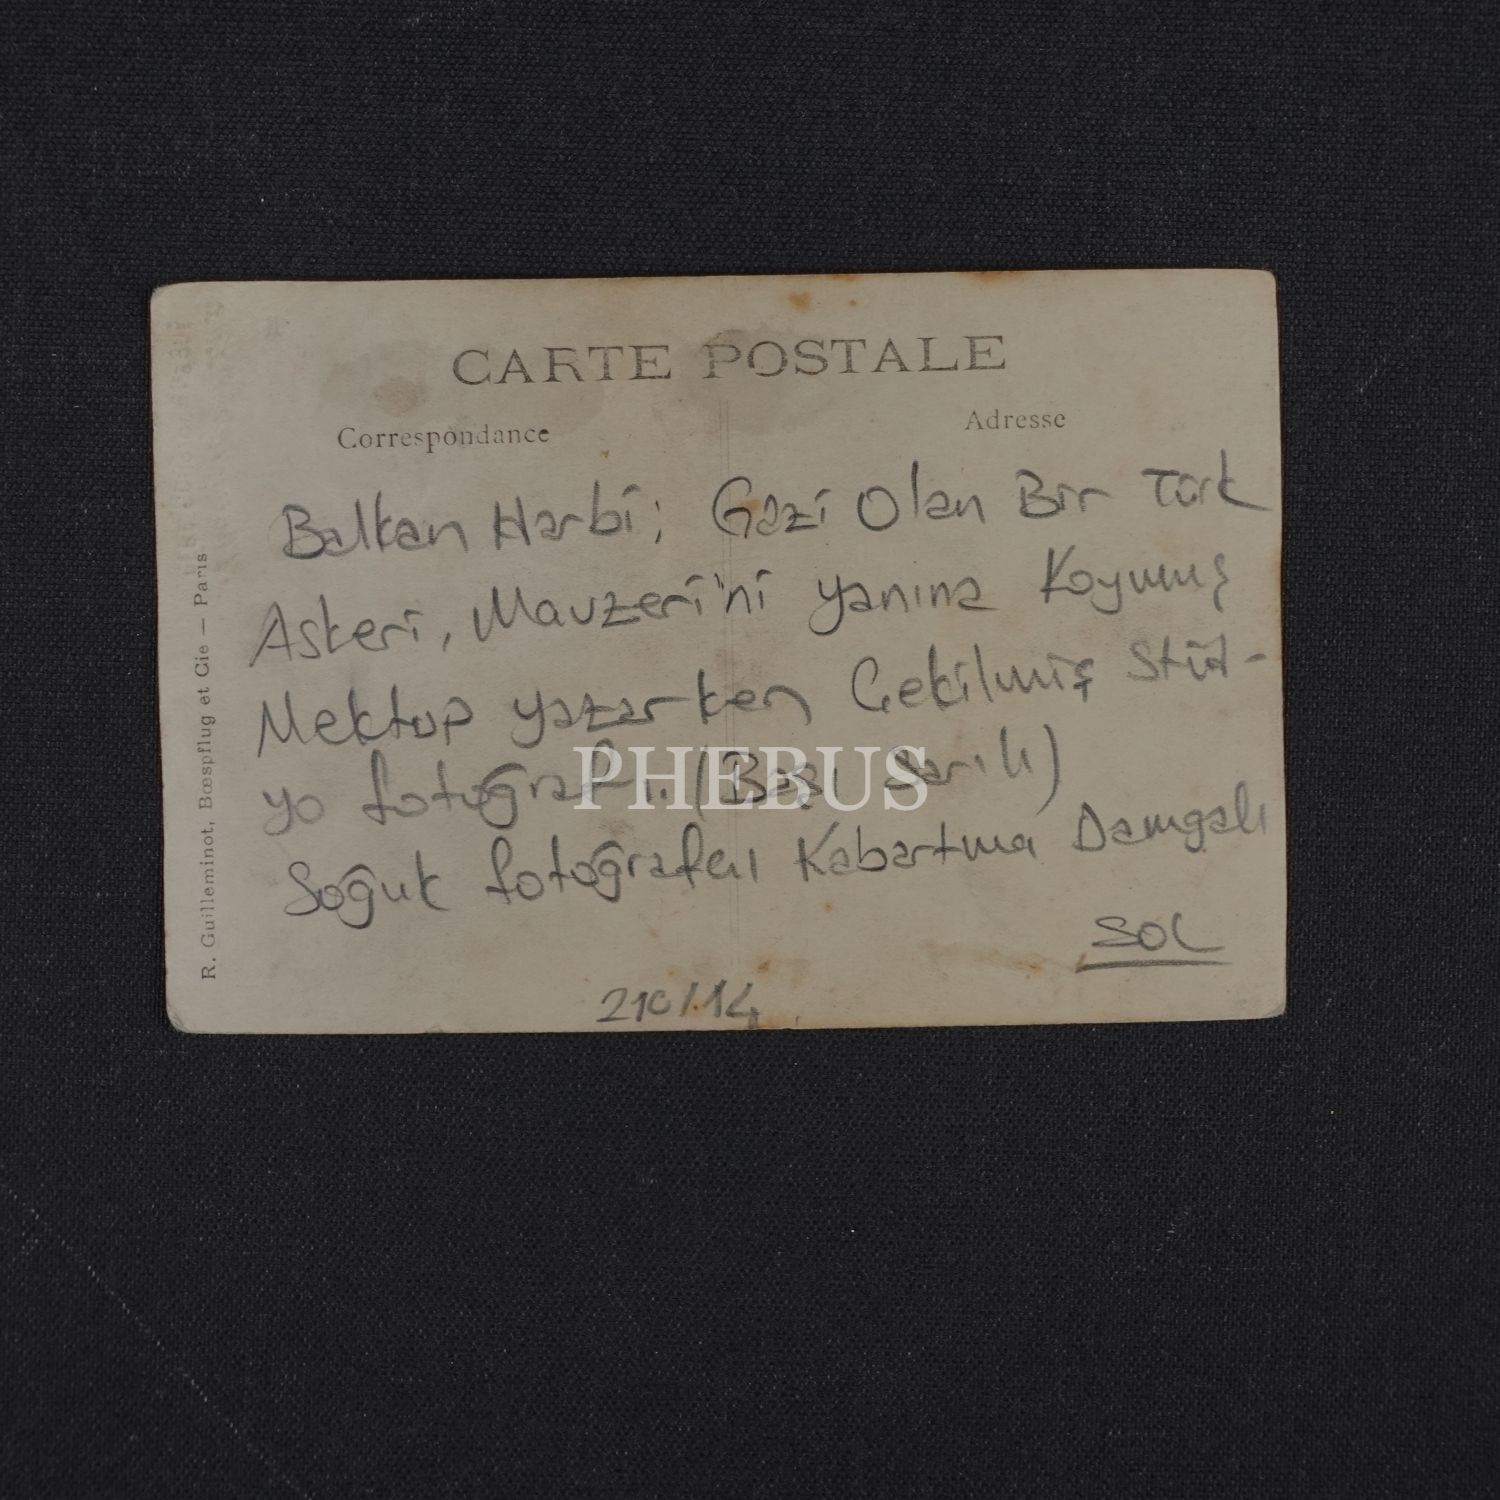 CARTE POSTALE
Correspondance
Adresse
Balkan Harbi; Gazi Olan Bir Türk
Askeri, Mauzeri'ni yanına Koymuş
Mektup yazarken Çekilmiş Stüd-
yo fotoğrafı. (Başı Sarılı)
Soğuk fotoğrafcı Kabartma Damgalı
SOL
210/14
R. Guilleminot, Bœspflug et Cie — Paris
PHEBUS